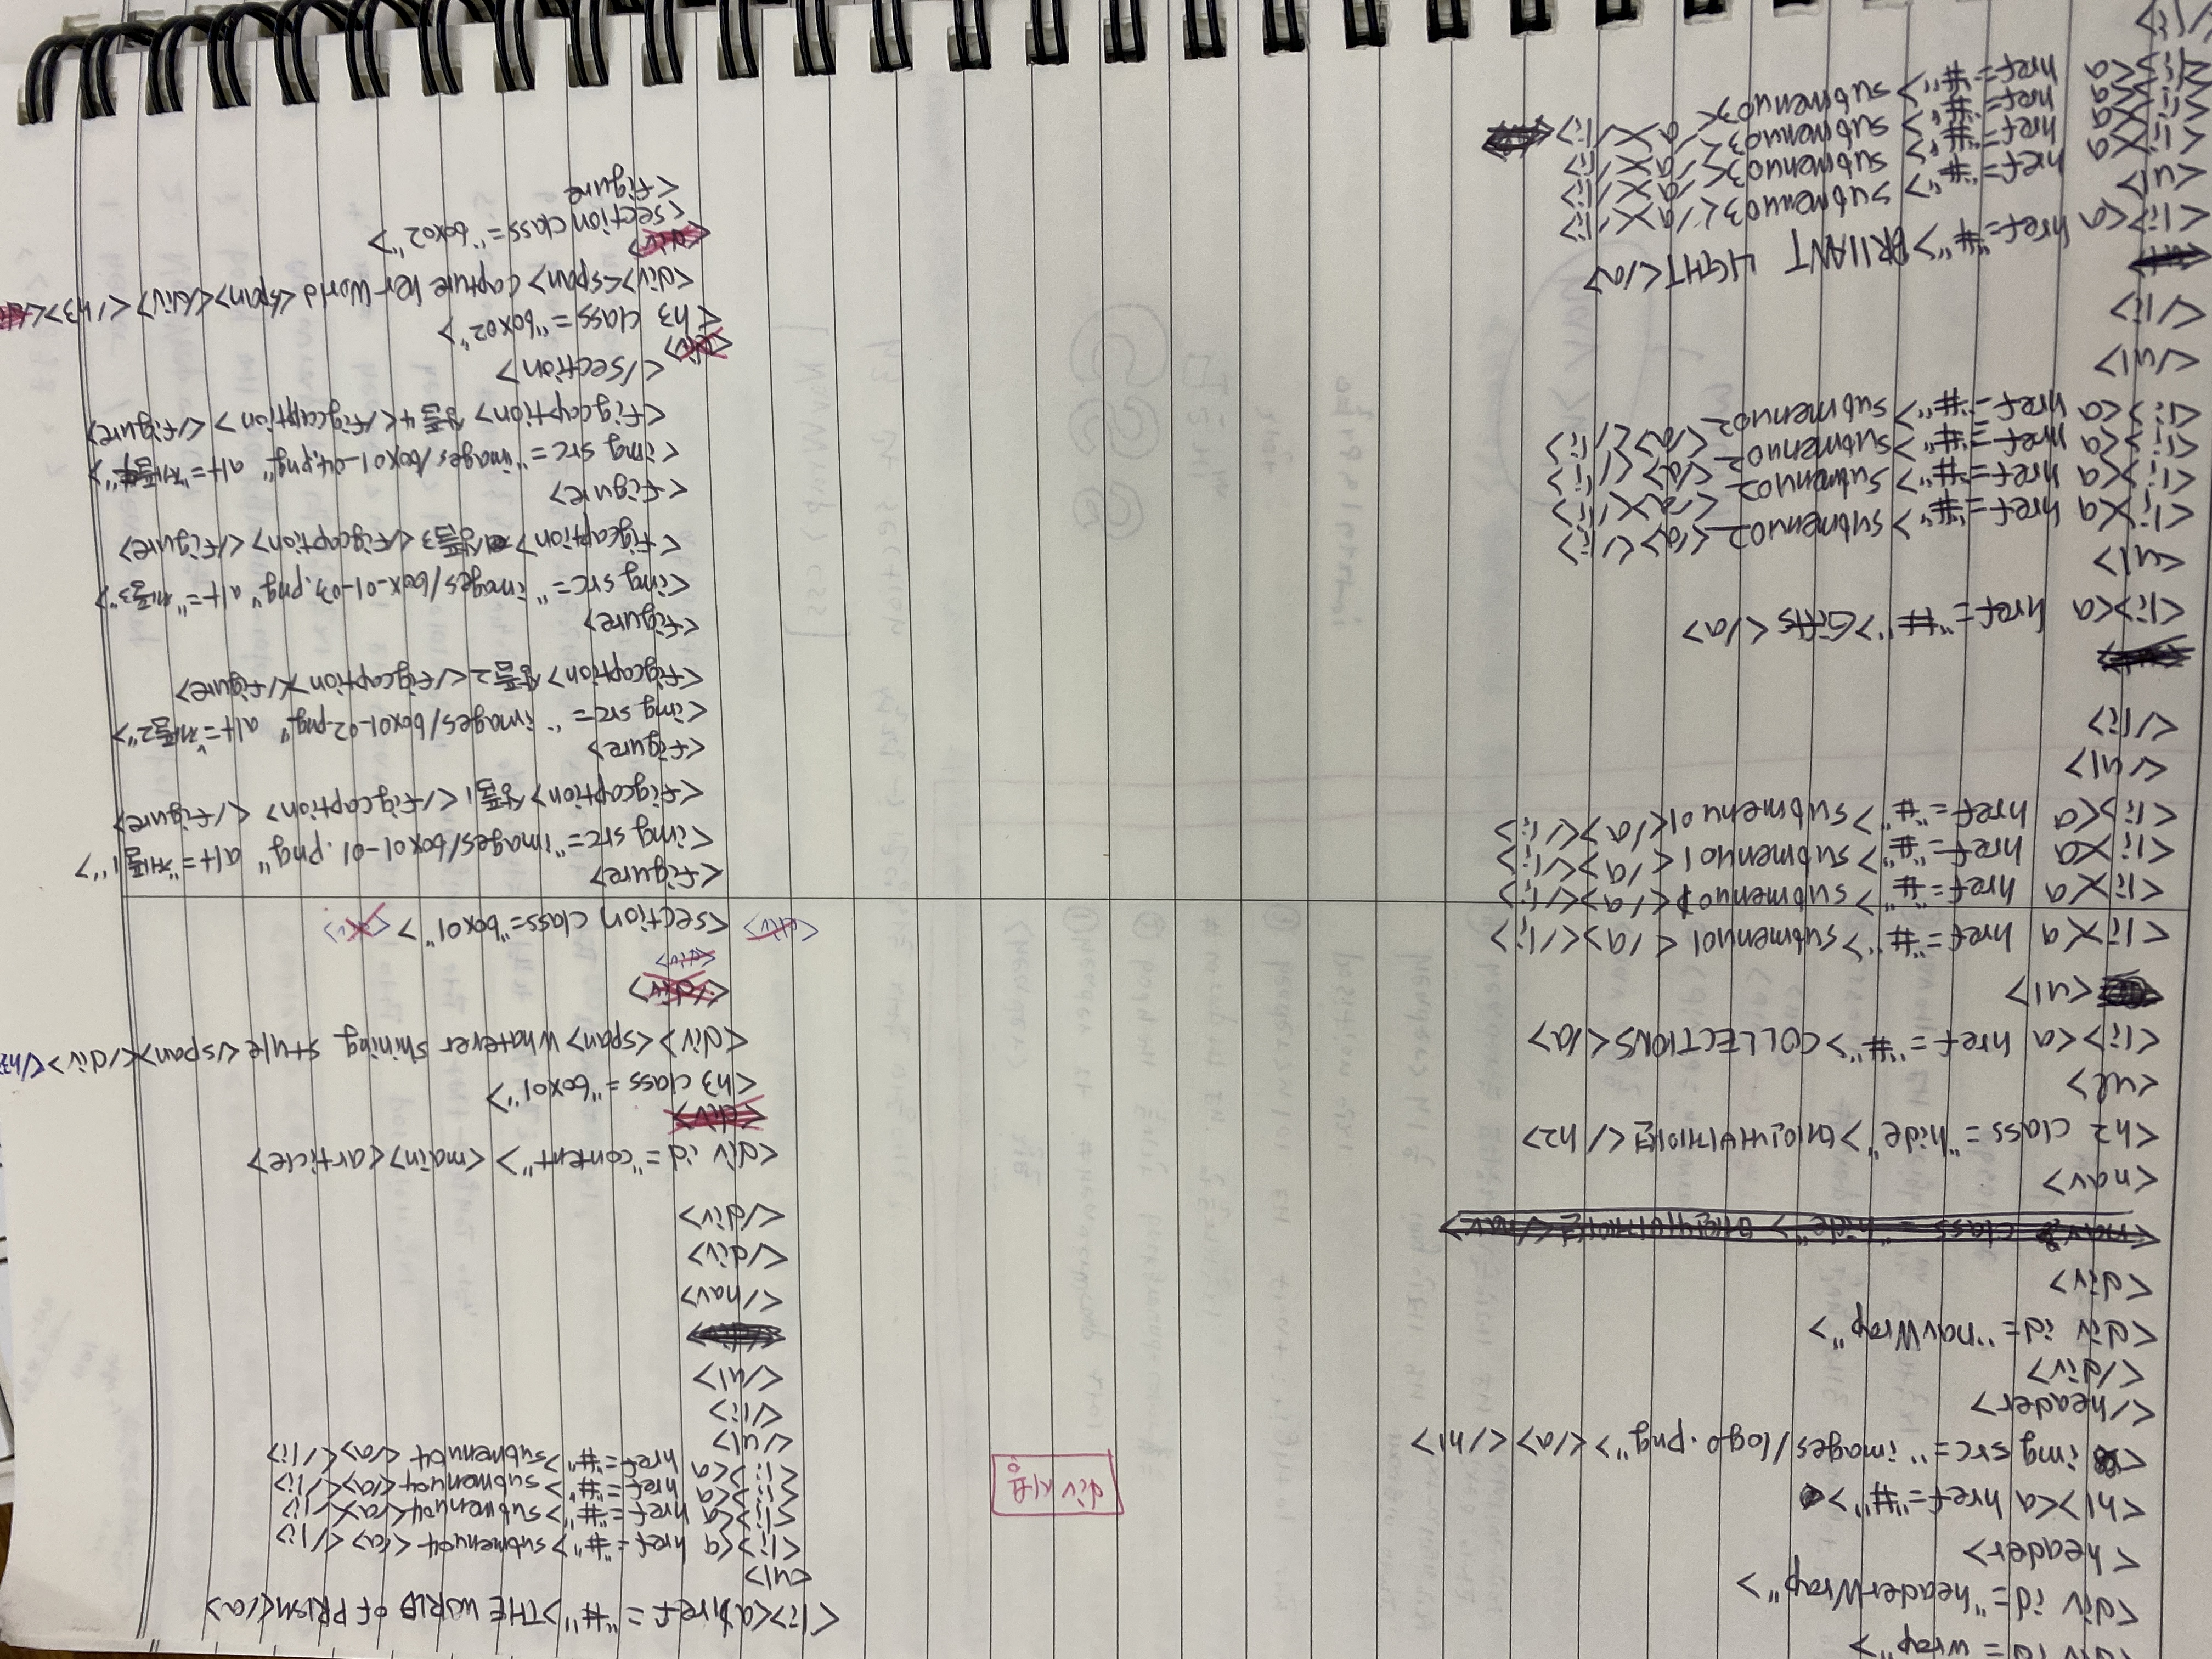 <div id="wrap">
<div id="headerWrap">
<header>
<h1><a href="#">
<img src="images/logo.png"></a></h1>
</header>
</div>
<div id="navWrap">
<div>
<nav>
<h2 class="hide">메인네비게이션</h2>
<ul>
<li><a href="#">COLLECTIONS</a>
<ul>
<li><a href="#">submenu01</a></li>
<li><a href="#">submenu01</a></li>
<li><a href="#">submenu01</a></li>
<li><a href="#">submenu01</a></li>
</ul>
</li>
<li><a href="#">Gifts</a>
<ul>
<li><a href="#">submenu02</a></li>
<li><a href="#">submenu02</a></li>
<li><a href="#">submenu02</a></li>
<li><a href="#">submenu02</a></li>
</ul>
</li>
<li><a href="#">BRIIANT LIGHT</a>
<ul>
<li><a href="#">submenu03</a></li>
<li><a href="#">submenu03</a></li>
<li><a href="#">submenu03</a></li>
<li><a href="#">submenu03</a></li>
div 사용
<li><a href="#">THE WORLD OF PRISM</a>
<ul>
<li><a href="#">submenu04</a></li>
<li><a href="#">submenu04</a></li>
<li><a href="#">submenu04</a></li>
<li><a href="#">submenu04</a></li>
</ul>
</li>
</ul>
</nav>
</div>
</div>
<div id="content"><main><article>
<h3 class="box01">
<div><span>whatever shining style</span></div></h3>
<section class="box01">
<figure>
<img src="images/box01-01.png" alt="제품1">
<figcaption>상품1</figcaption></figure>
<figure>
<img src="images/box01-02.png" alt="제품2">
<figcaption>상품2</figcaption></figure>
<figure>
<img src="images/box-01-03.png" alt="제품3">
<figcaption>상품3</figcaption></figure>
<figure>
<img src="images/box01-04.png" alt="제품4">
<figcaption>상품4</figcaption></figure>
</section>
<h3 class="box02">
<div><span>capture her world<span></div></h3>
<section class="box02">
<figure